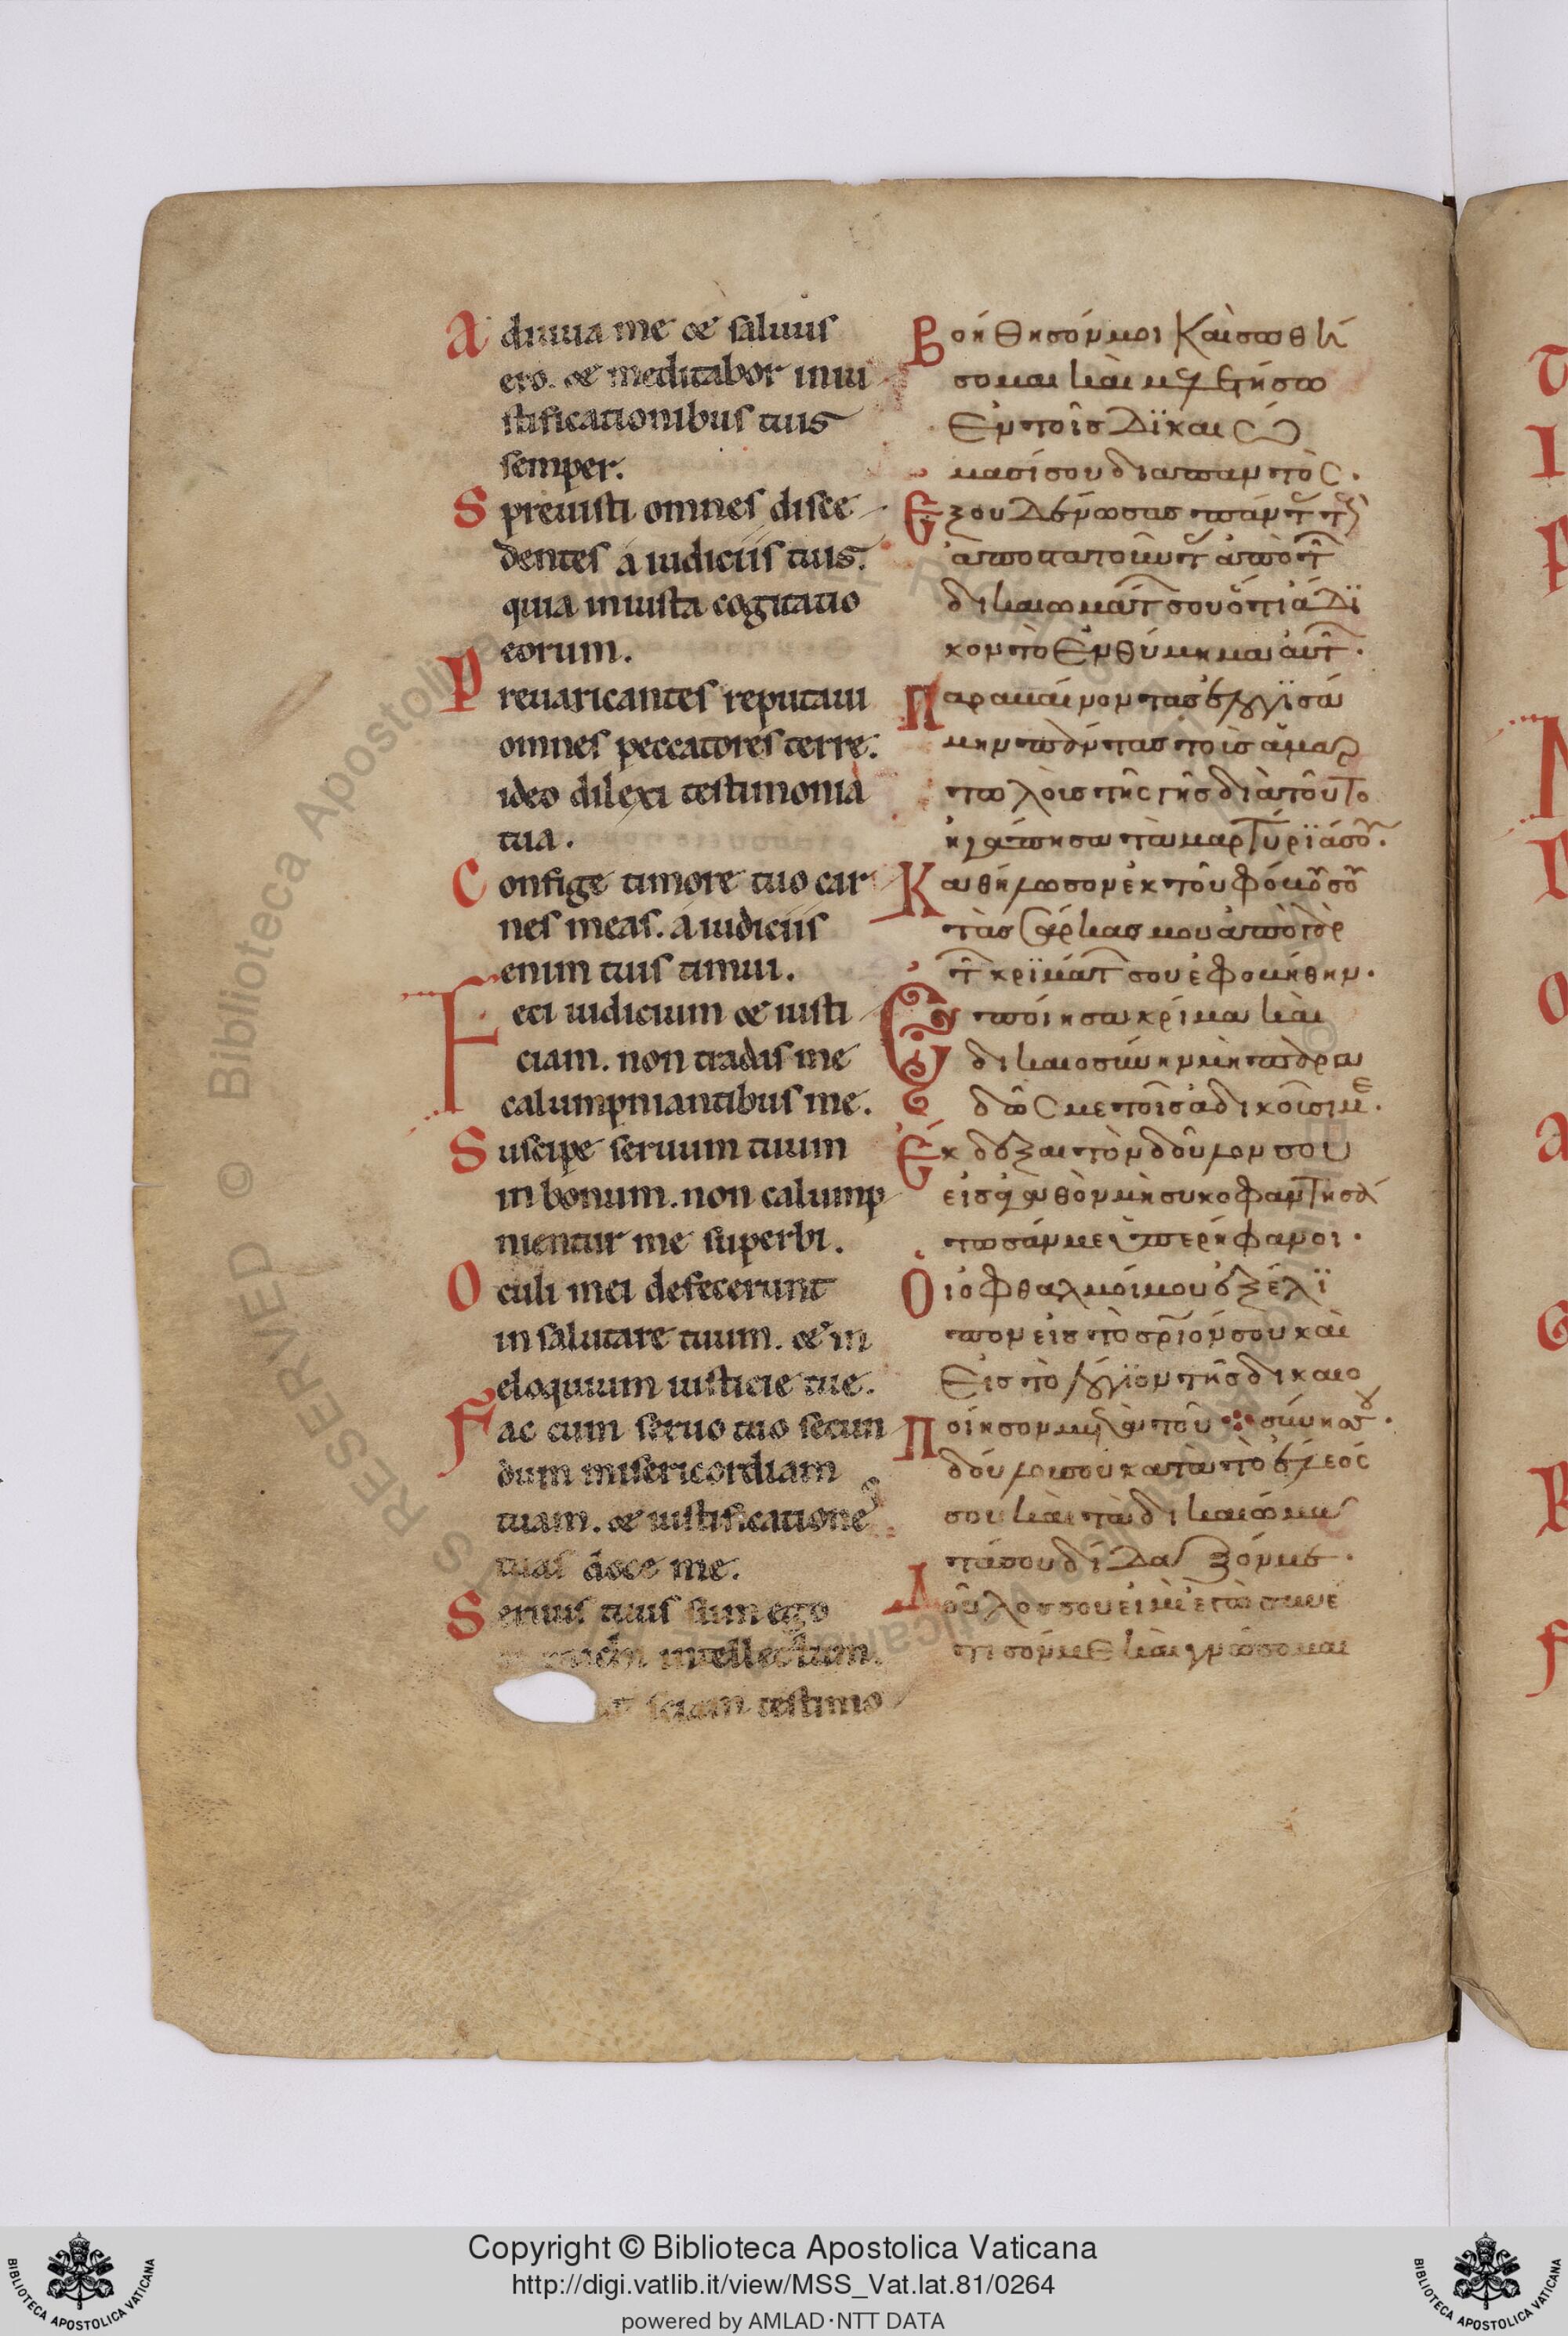 Adiuua me & saluus
ero. & meditabor in iu
stificationibus tuis
semper.
Spreuisti omnes disce
dentes a iudiciis tuis.
quia iniusta cogitatio
eorum.
Preuaricantes reputaui
omnes peccatores terre.
ideo dilexi testimonia
tua.
Confige timore tuo car
nes meas. a iudiciis
enim tuis timui.
Feci iudicium & iusti
ciam. non tradas me
calumpniantibus me.
Suscipe seruum tuum
in bonum. non calump
nientur me superbi.
Oculi mei defecerunt
in salutare tuum. & in
eloquium iusticie tue.
Fac cum seruo tuo secun
dum misericordiam
tuam. & iustificationes
tuas doce me.
Seruus tuus sum ego
michi intellectum.
ut sciam testimo
Βοήθησόν μοι καὶ σωθή
σομαι καὶ μελετήσω
ἐν τοῖς δϊκαιώ
μασί σου διαπαντὸς.
Ἐξουδένωσας πάντ τ
ἀποστατοῦντ ἀπὸ τ
δικαιωμάτ σου ὅτι ἄδϊ
κον τὸ ἐνθύμημα αὐτ.
Παραβαίνοντας ἐλογϊσά
μην πάντας τοὶς ἁμαρ
τωλοὶς τῆς γῆς διὰ τοῦτο
ηγάπησα τὰ μαρτύρϊά σου.
Καθήλωσον ἐκ τοῦ φόβου σου
τὰς σάρκας μου ἀπὸ γὰρ
τ κρϊμάτ σου ἐφοβήθην.
Ἐποίησα κρίμα καὶ
δικαιοσύνην μὴ παρα
δῶς με τοῖς ἀδικοῦσι με.
Ἔκδεξαι τὸν δοῦλον σου
εἰς ἀγαθὸν μὴ συκοφαντησά
τωσάν με ὑπερήφανοι.
Οἱ ὀφθαλμοί μου ἐξέλϊ
πον εἰς τὸ σρϊόν σου καὶ
εἰς τὸ λόγϊον τῆς δικαιο
Ποίησον μετὰ τοῦ σύνης σου.
δούλου σου κατὰ τὸ ἔλεός
σου καὶ τὰ δικαιώμα
τά σου δίδαξόν με.
Δοῦλος σου εἰμὶ ἐγὼ συνέ
τισόν με καὶ γνώσομαι
Copyright © Biblioteca Apostolica Vaticana
http://digi.vatlib.it/view/MSS_Vat.lat.81/0264
powered by AMLAD·NTT DATA
BIBLIOTECA APOSTOLICA VATICANA
BIBLIOTECA APOSTOLICA VATICANA